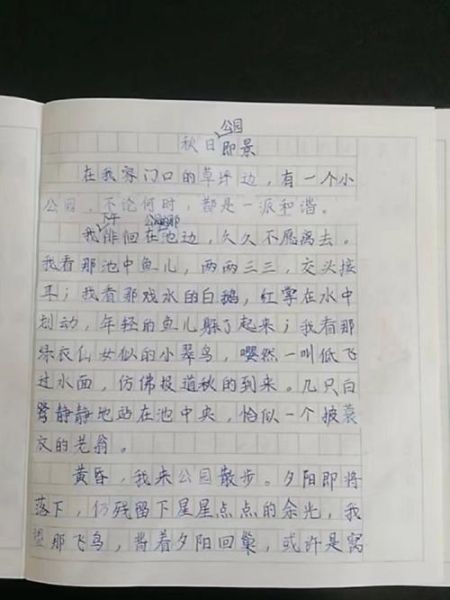 秋日公园即景
在我家门口的草坪边，有一个小
公园，不论何时，都是一派和谐。
下午我徘徊在公园的池边，久久不愿离去。
我看那池中鱼儿，两两三三，交头接
耳；我看那戏水的白鹅，红掌在水中
划动，年轻的鱼儿躲了起来；我看那
绿衣仙女似的小翠鸟，嘤然一叫低飞
过水面，仿佛报道秋的到来。几只白
鹭静静地站在池中央，恰似一个披蓑
衣的老翁。
黄昏，我来公园散步。夕阳即将
落下，仍残留下星星点点的余光，我
望那飞鸟，背着夕阳回巢，或许是离